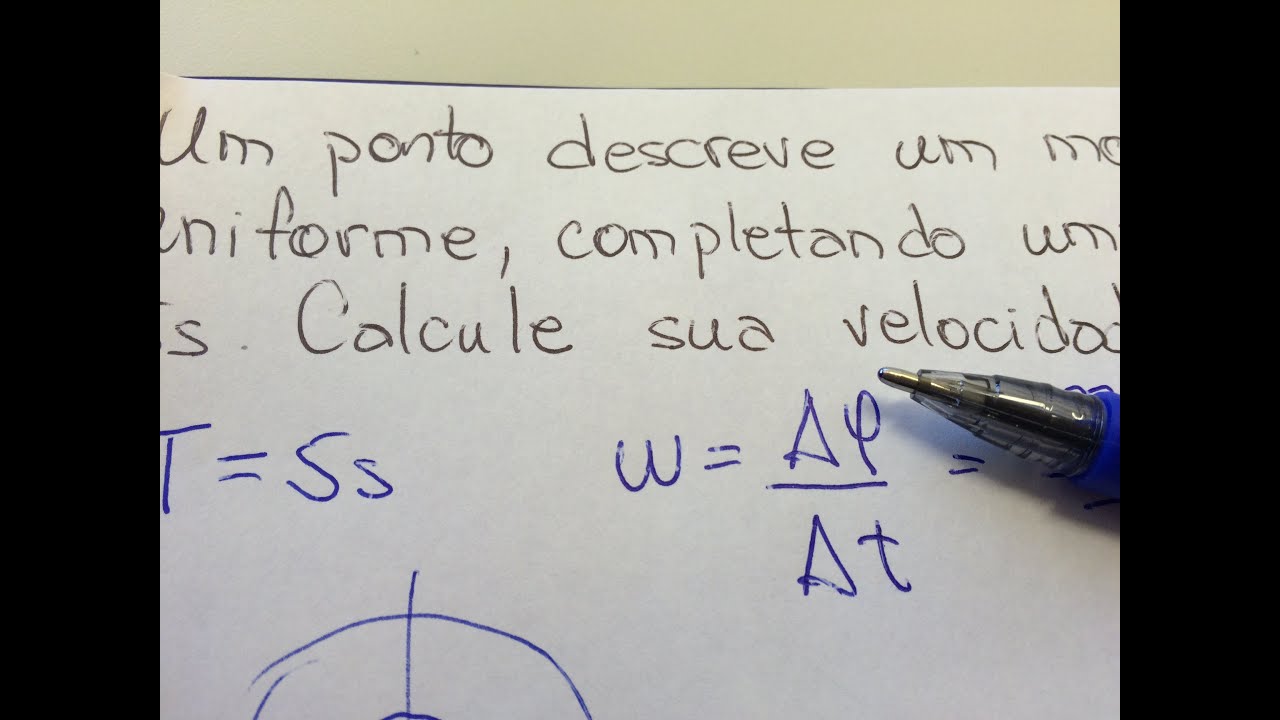 Um ponto descreve um mo
uniforme, completando um
5s. Calcule sua velocidad
T = 5s
ω = Δφ =
Δt